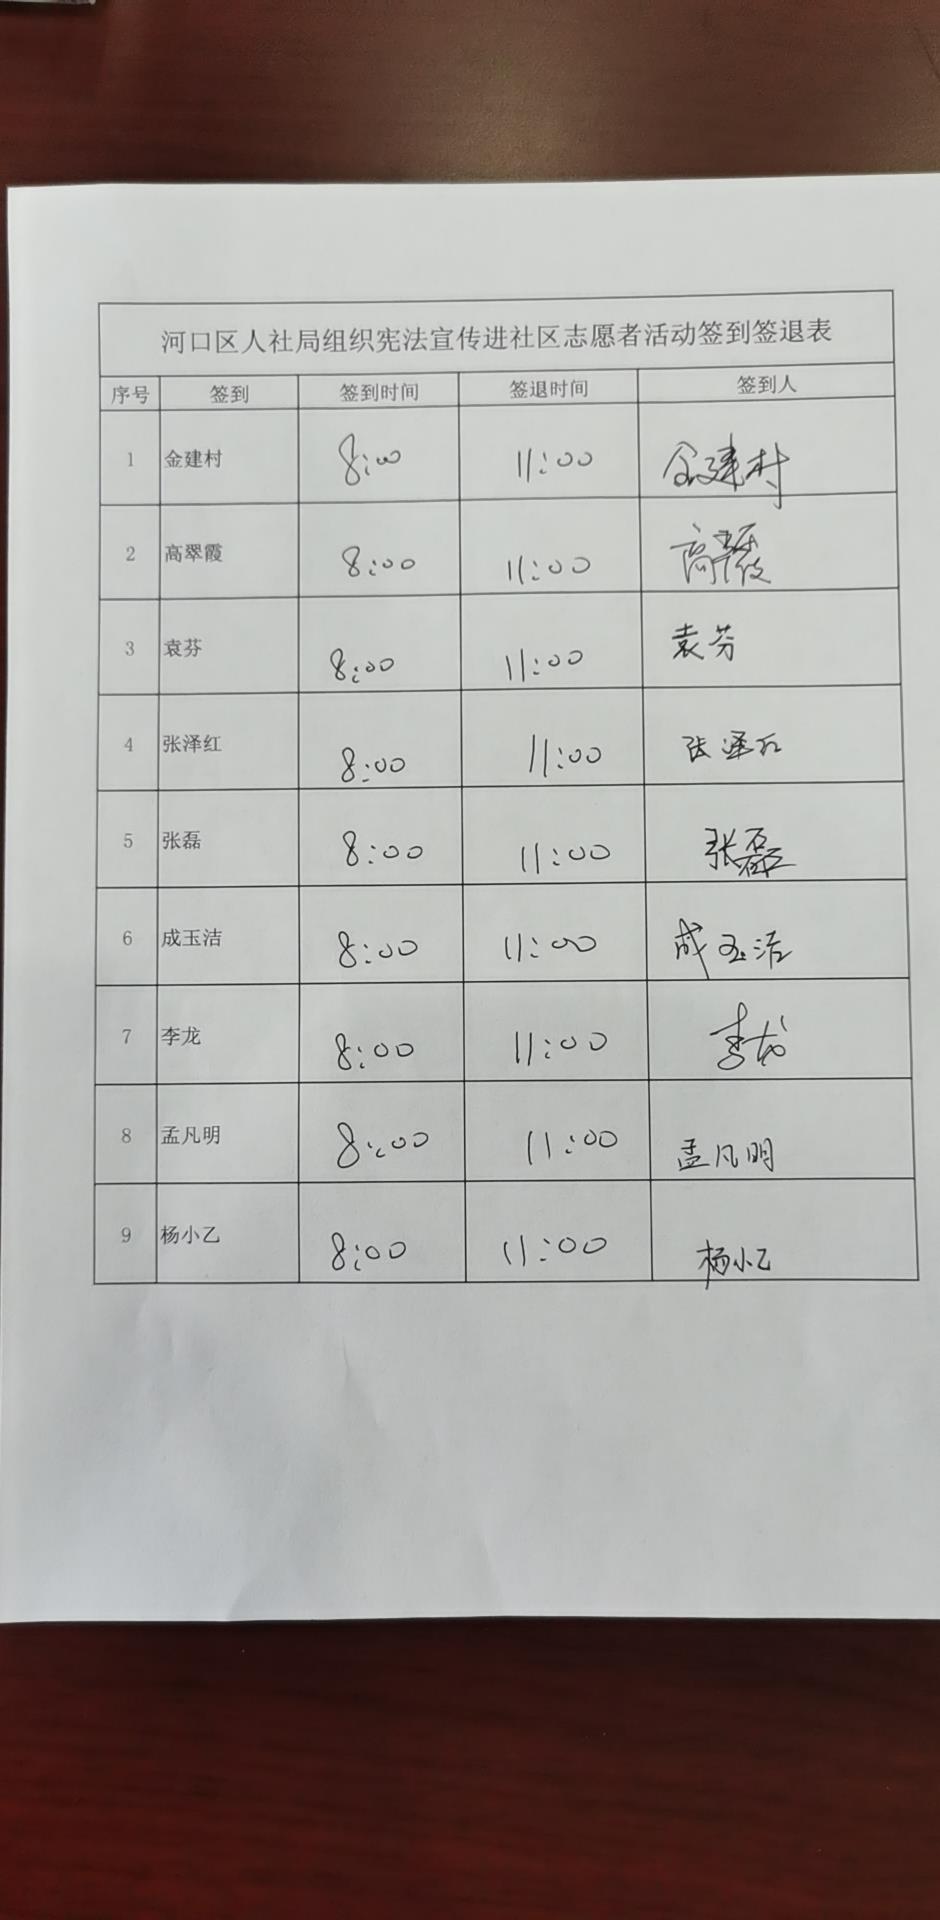 河口区人社局组织宪法宣传进社区志愿者活动签到签退表
序号 签到 签到时间 签退时间 签到人
1 金建村 8:00 11:00 金建村
2 高翠霞 8:00 11:00 高翠霞
3 袁芬 8:00 11:00 袁芬
4 张泽红 8:00 11:00 张泽红
5 张磊 8:00 11:00 张磊
6 成玉洁 8:00 11:00 成玉洁
7 李龙 8:00 11:00 李龙
8 孟凡明 8:00 11:00 孟凡明
9 杨小乙 8:00 11:00 杨小乙